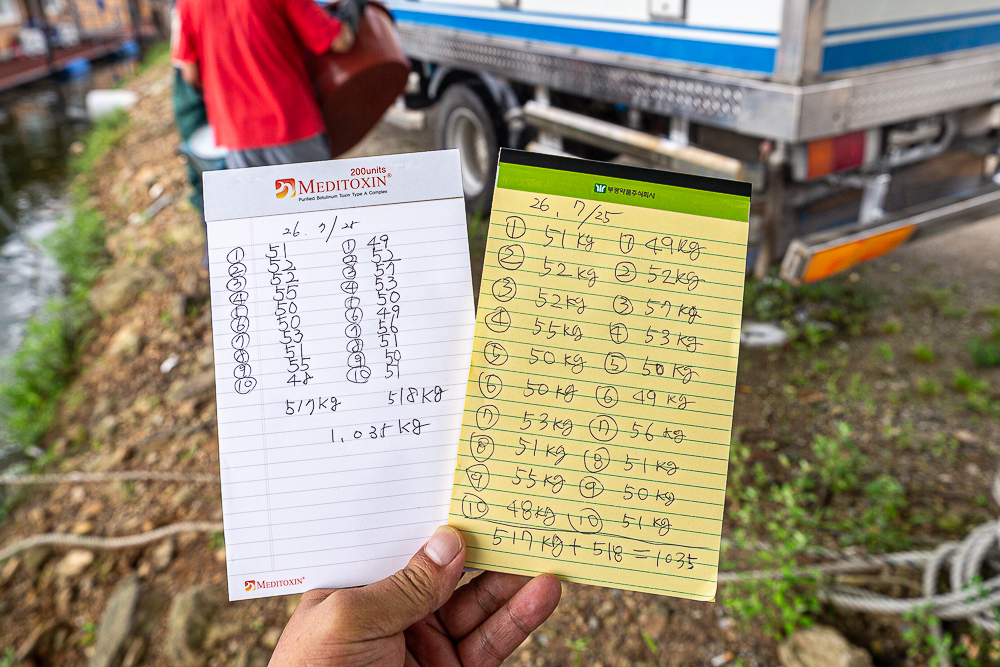 200units
MEDITOXIN®
Purified Botulinum Toxin Type A Complex
26. 7/25
① 51 ① 49
② 52 ② 52
③ 52 ③ 57
④ 55 ④ 53
⑤ 50 ⑤ 50
⑥ 50 ⑥ 49
⑦ 53 ⑦ 56
⑧ 51 ⑧ 51
⑨ 55 ⑨ 50
⑩ 48 ⑩ 51
517kg 518kg
1,035kg
MEDITOXIN®
부광약품주식회사
26. 7/25
① 51kg ① 49kg
② 52kg ② 52kg
③ 52kg ③ 57kg
④ 55kg ④ 53kg
⑤ 50kg ⑤ 50kg
⑥ 50kg ⑥ 49kg
⑦ 53kg ⑦ 56kg
⑧ 51kg ⑧ 51kg
⑨ 55kg ⑨ 50kg
⑩ 48kg ⑩ 51kg
517kg+518=1035